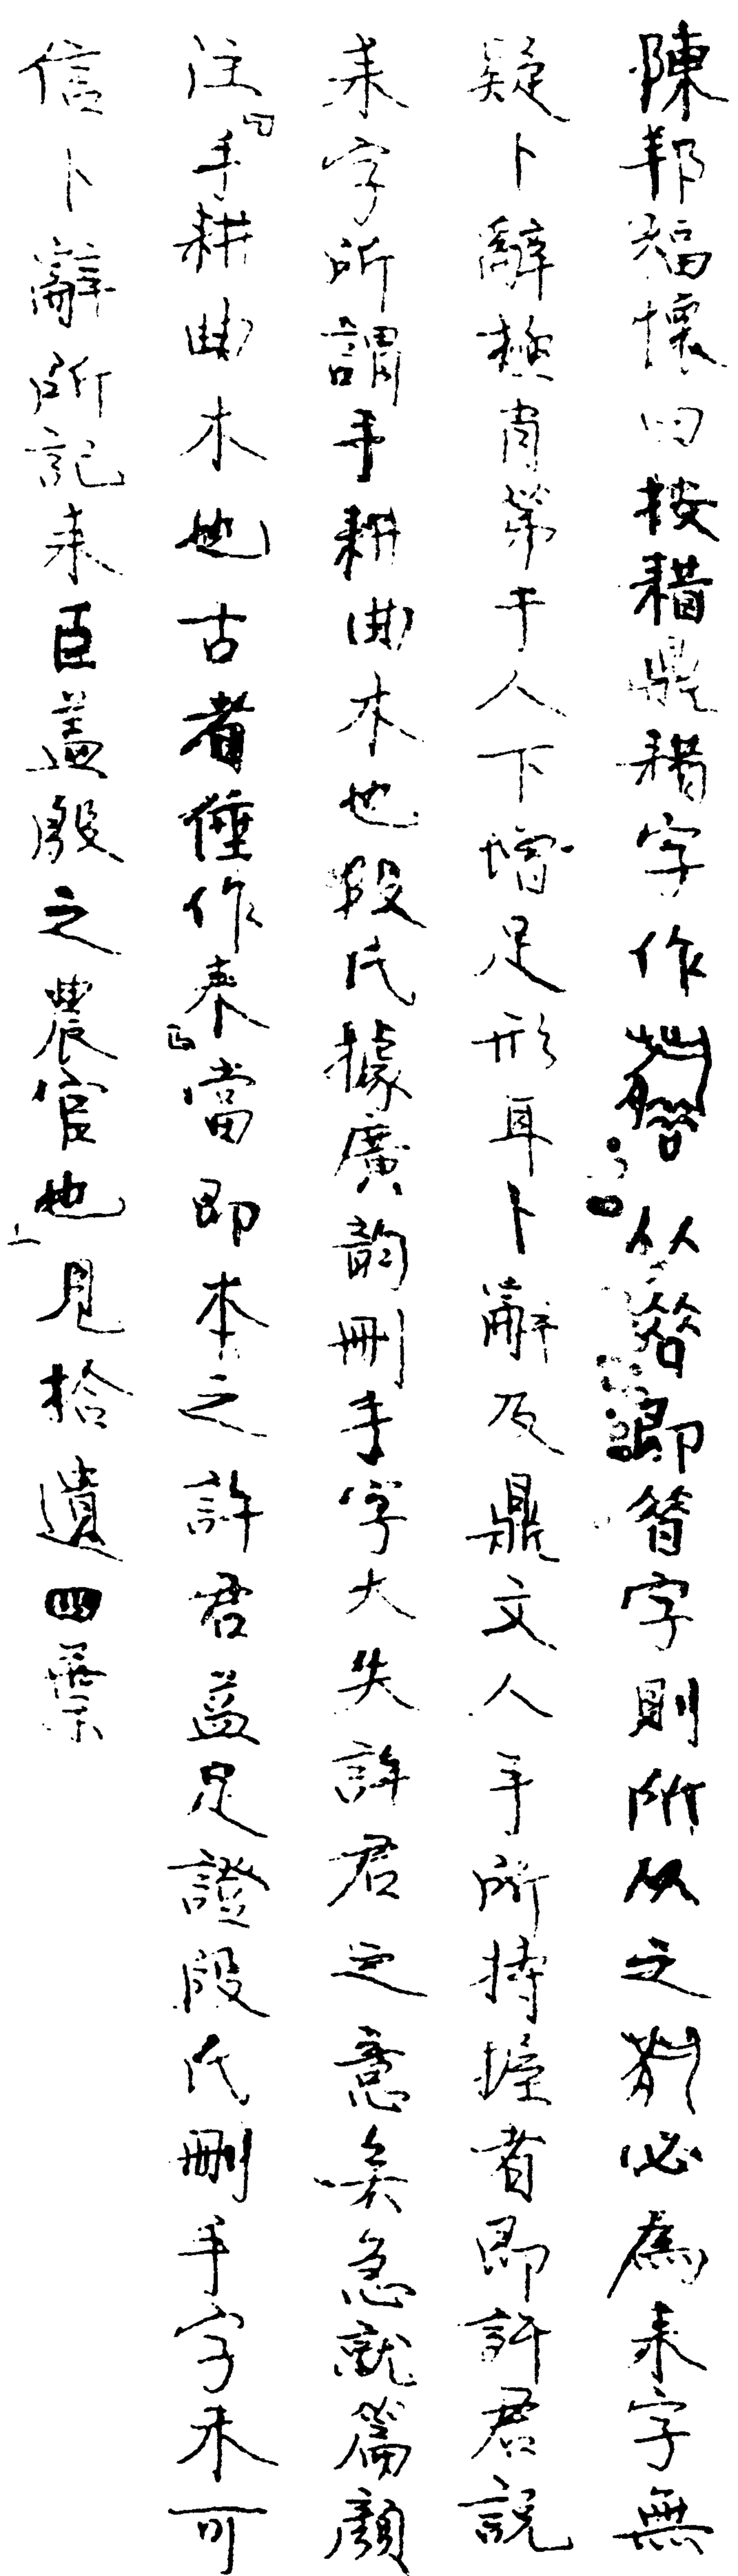 陳邦福懷曰按耤鼎耤字作從㫺即㫺字則所从之必為耒字無
疑卜辭極肖第于人下增足形耳卜辭及鼎文人手所持握者即許君說
耒字所謂手耕曲木也段氏據廣韵刪手字大失許君之意矣急就篇顏
注「手耕曲木也古者倕作耒」當即本之許君益足證段氏刪手字未可
信卜辭所記耒臣蓋殷之農官也見拾遺四葉